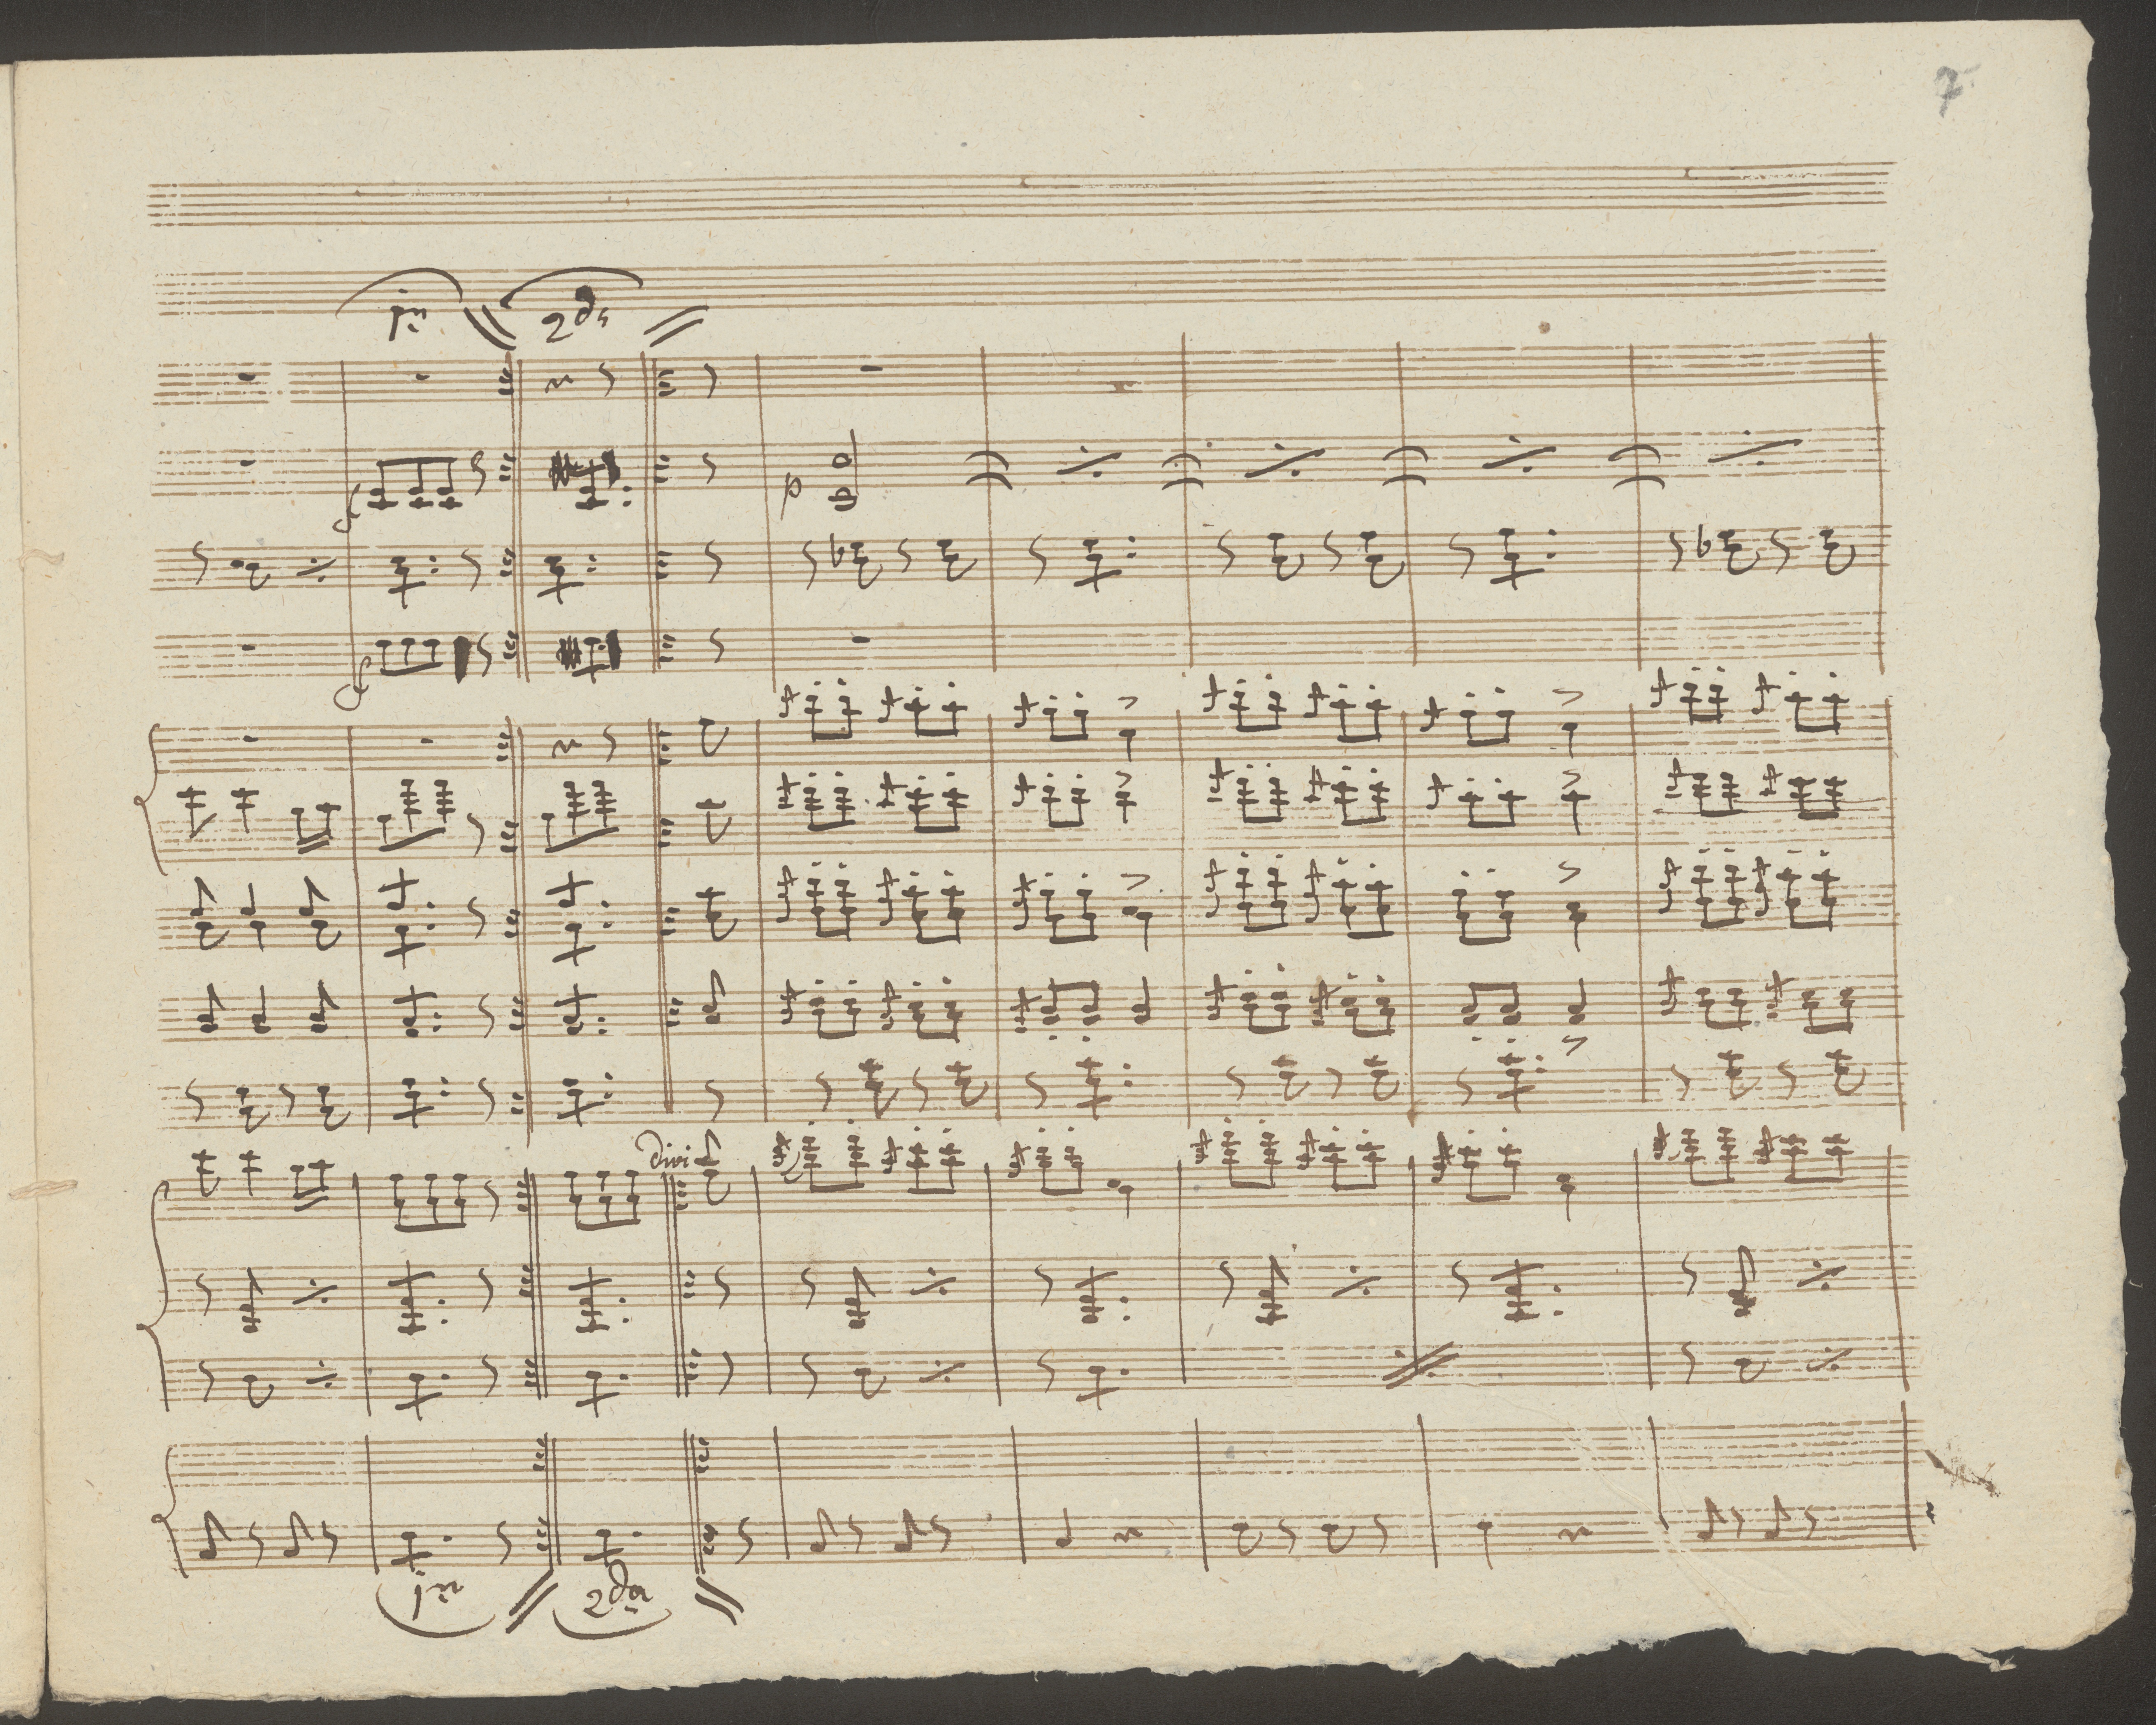 7
1ma
2da
f
p
f
divi
1ma
2da